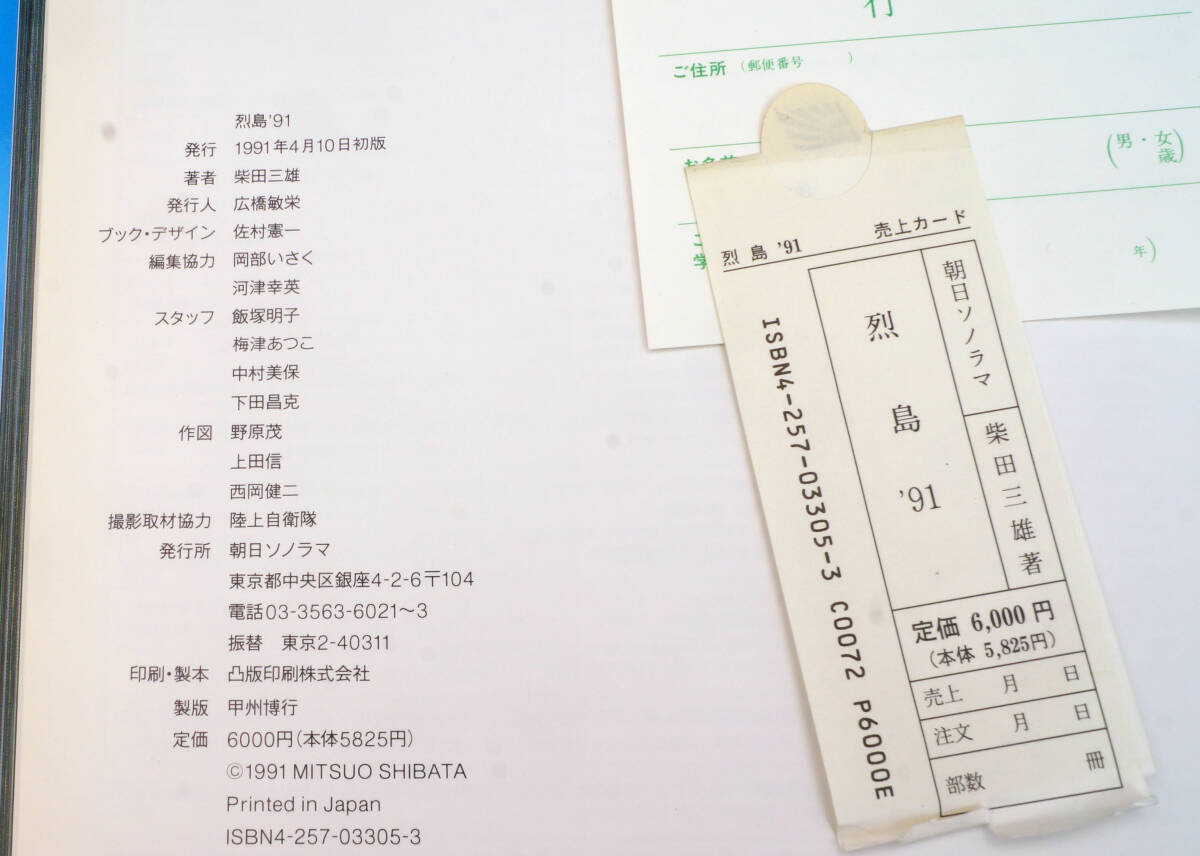 烈島'91
発行 1991年4月10日初版
著者 柴田三雄
発行人 広橋敏栄
ブック・デザイン 佐村憲一
編集協力 岡部いさく
河津幸英
スタッフ 飯塚明子
梅津あつこ
中村美保
下田昌克
作図 野原茂
上田信
西岡健二
撮影取材協力 陸上自衛隊
発行所 朝日ソノラマ
東京都中央区銀座4-2-6〒104
電話03-3563-6021〜3
振替 東京2-40311
印刷・製本 凸版印刷株式会社
製版 甲州博行
定価 6000円(本体5825円)
©1991 MITSUO SHIBATA
Printed in Japan
ISBN4-257-03305-3
行
ご住所 (郵便番号 )
(男・女
歳)
年)
烈島'91 売上カード
朝日ソノラマ
柴田三雄著
烈島'91
ISBN4-257-03305-3 C0072 P6000E
定価 6,000円
(本体 5,825円)
売上 月 日
注文 月 日
部数 冊